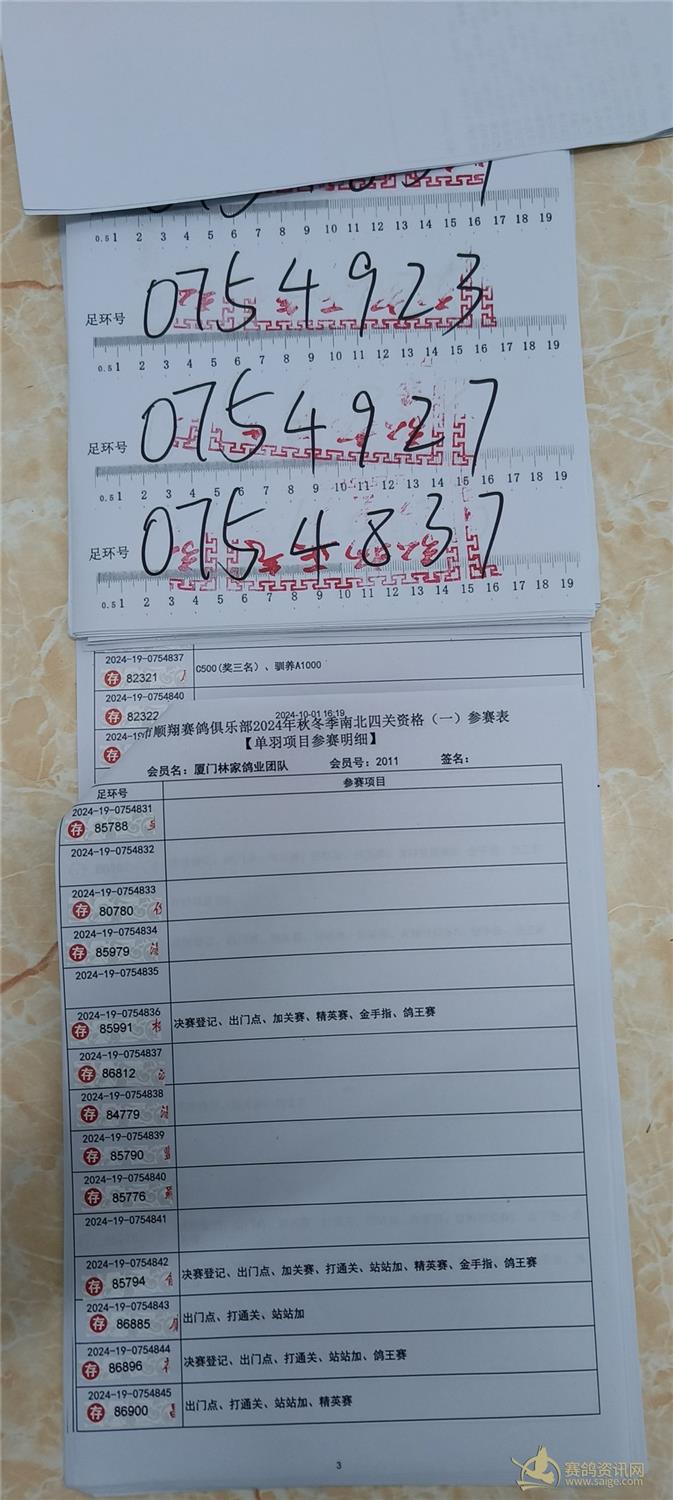 0.51 2 3 4 5 6 7 8 9 10 11 12 13 14 15 16 17 18 19
足环号 0754923
0.51 2 3 4 5 6 7 8 9 10 11 12 13 14 15 16 17 18 19
足环号 0754927
0.51 2 3 4 5 6 7 8 9 10 11 12 13 14 15 16 17 18 19
足环号 0754837
0.51 2 3 4 5 6 7 8 9 10 11 12 13 14 15 16 17 18 19
2024-19-0754837
存 82321 C500(奖三名)、驯养A1000
2024-19-0754840
存 82322
2024-10-01 16:19
2024-19
存
市顺翔赛鸽俱乐部2024年秋冬季南北四关资格（一）参赛表
【单羽项目参赛明细】
会员名: 厦门林家鸽业团队 会员号: 2011 签名:
足环号 参赛项目
2024-19-0754831
存 85788
2024-19-0754832
2024-19-0754833
存 80780
2024-19-0754834
存 85979
2024-19-0754835
2024-19-0754836
存 85991 决赛登记、出门点、加关赛、精英赛、金手指、鸽王赛
2024-19-0754837
存 86812
2024-19-0754838
存 84779
2024-19-0754839
存 85790
2024-19-0754840
存 85776
2024-19-0754841
2024-19-0754842
存 85794 决赛登记、出门点、加关赛、打通关、站站加、精英赛、金手指、鸽王赛
2024-19-0754843
存 86885 出门点、打通关、站站加
2024-19-0754844
存 86896 决赛登记、出门点、打通关、站站加、鸽王赛
2024-19-0754845
存 86900 出门点、打通关、站站加、精英赛
3
赛鸽资讯网
www.saige.com